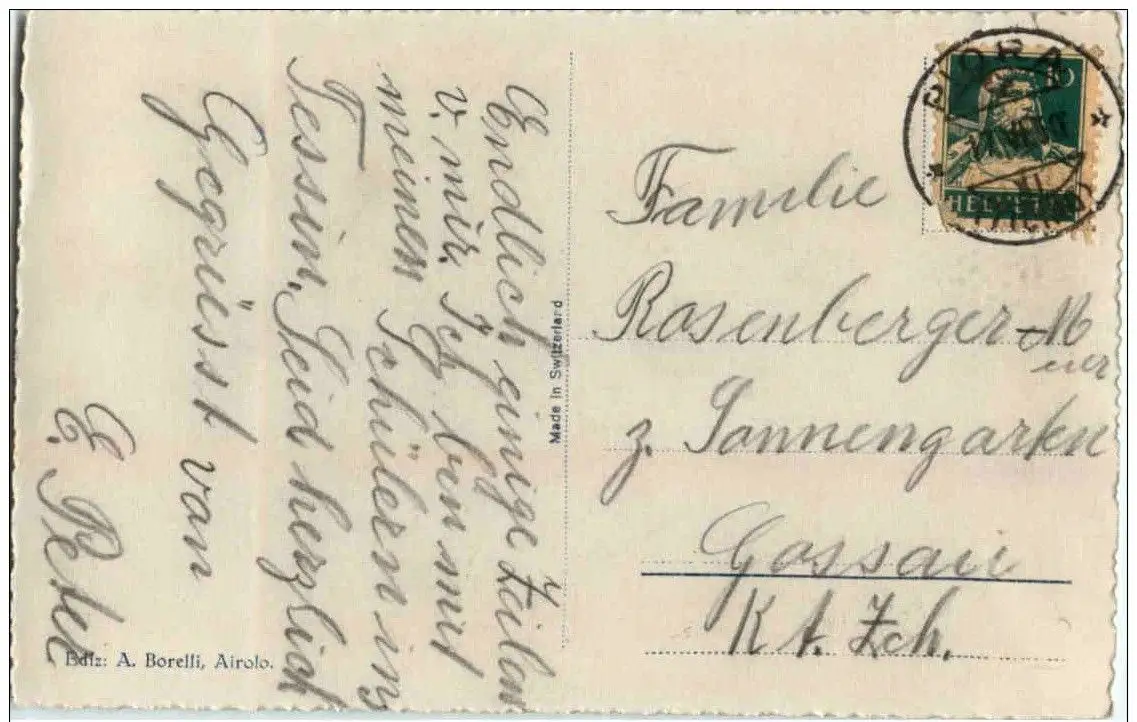 Endlich einige Zeilen
v. mir. Ich bin mit
meinen Schülern in
Tessin. Seid herzlich
Gegrüsst von
E. Peter
Ediz: A. Borelli, Airolo.
Made in Switzerland
PIORA
10
HELVETIA
Familie
Rosenberger-M
z. Sonnengarten
Gossau
Kt. Zch.